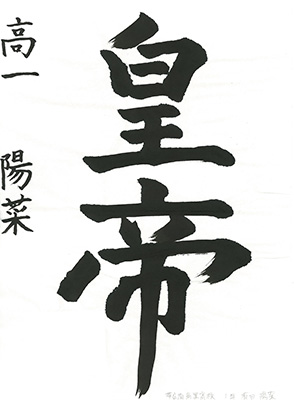 皇帝
高一 陽菜